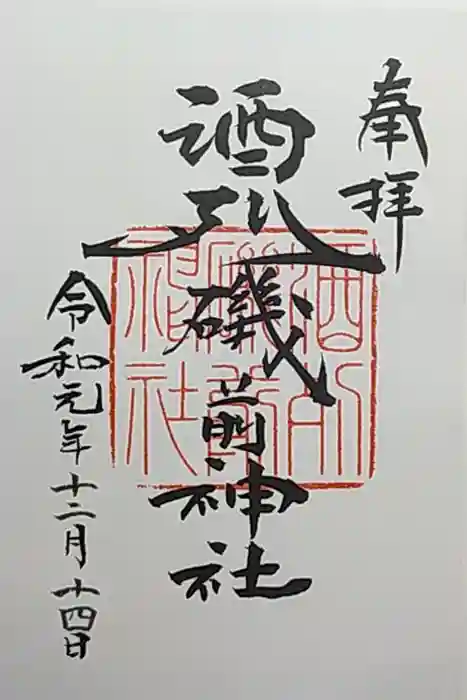 奉拝
酒列磯前神社
令和元年十二月十四日
酒列
磯前
神社